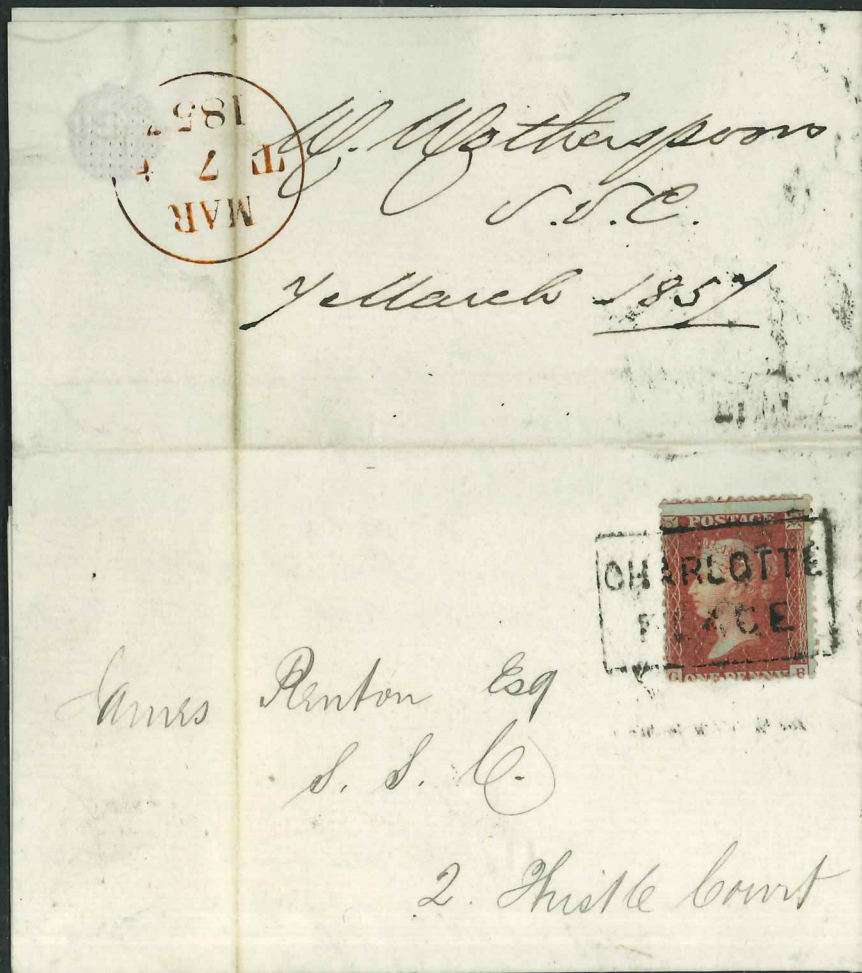 W. Wotherspoon
S.S.C.
7 March 1857
MAR
T 7
185
POSTAGE
CHARLOTTE
PLACE
G ONE PENNY
James Renton Esq
S. S. C.
2. Thistle Court